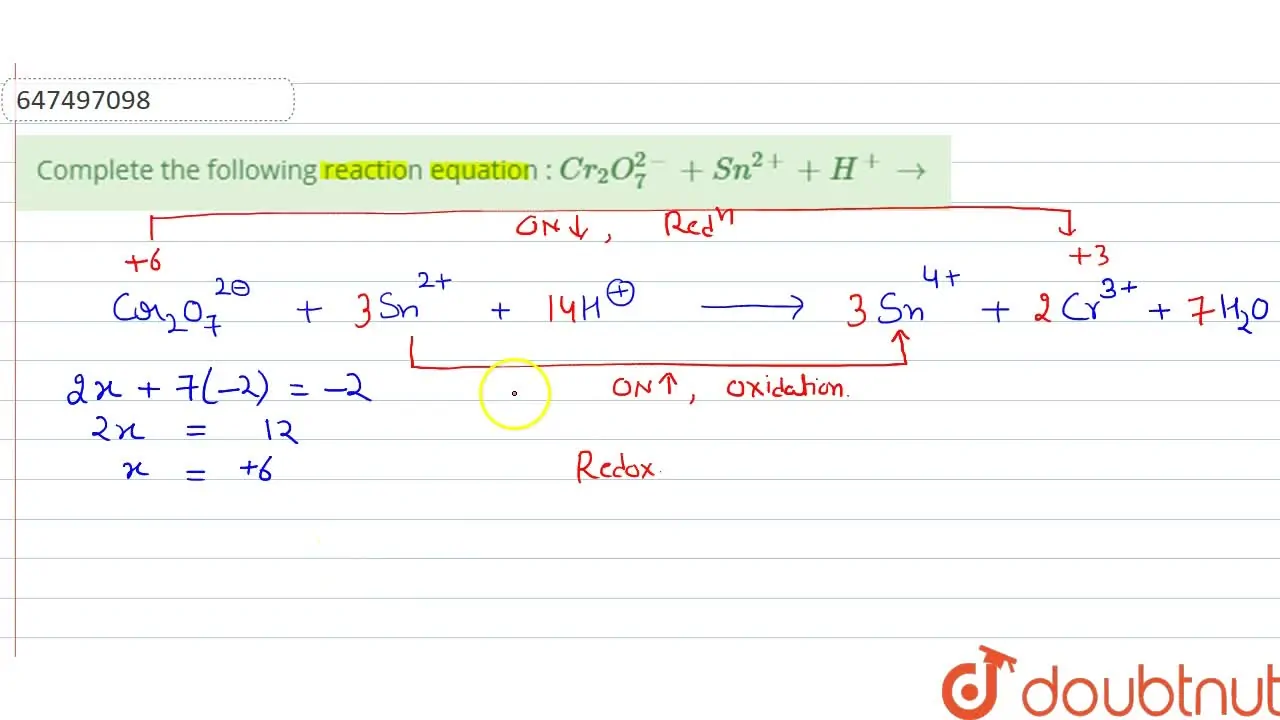 647497098
Complete the following reaction equation : Cr₂O₇²⁻ + Sn²⁺ + H⁺ →
ON↓, Redⁿ
+6 +3
Cr₂O₇²⊖ + 3Sn²⁺ + 14H⊕ ⟶ 3Sn⁴⁺ + 2Cr³⁺ + 7H₂O
2x + 7(-2) = -2 ON↑, Oxidation.
2x = 12
x = +6 Redox.
doubtnut